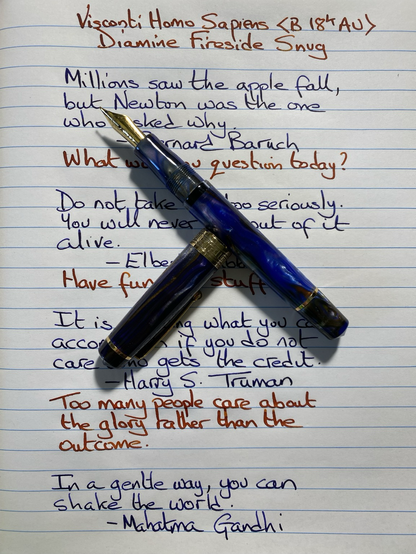 Visconti Homo Sapiens <B 18k AU>
Diamine Fireside Snug
Millions saw the apple fall,
but Newton was the one
who asked why.
- Bernard Baruch
What would you question today?
Do not take too seriously.
You will never out of it
alive.
- Elbert Hubbard
Have fun stuff
It is what you can
accomplish if you do not
care who gets the credit.
- Harry S. Truman
Too many people care about
the glory rather than the
outcome.
In a gentle way, you can
shake the world.
- Mahatma Gandhi